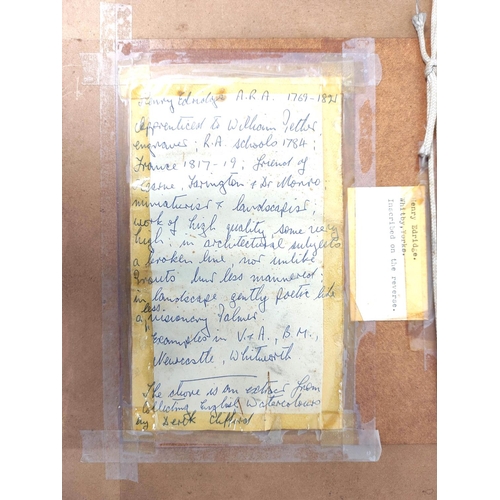 Henry Edridge A.R.A. 1769-1821
Apprenticed to William Pether
engraver; R.A. schools 1784;
France 1817-19; friend of
Hearne, Farington & Dr Monro;
miniaturist & landscapist;
work of high quality, some very
high: in architectural subjects
a broken line not unlike
Prouts but less mannered
in landscape gently poetic like
a less visionary Palmer
Examples in V & A., B.M.,
Newcastle, Whitworth
The above is an extract from
Collecting English Watercolours
by Derek Clifford
Henry Edridge.
Whitby, Yorks.
Inscribed on the reverse.